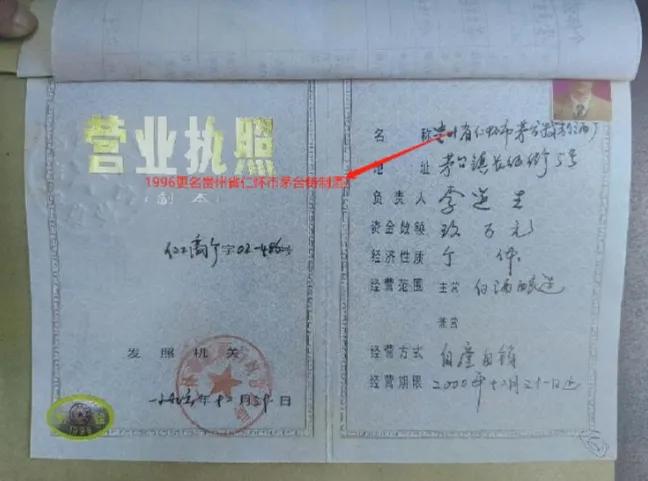 营业执照
1996更名贵州省仁怀市茅台镇制酒
（副本）
字02-486号
发照机关
一九九六年十二月卅一日
1996
名称 贵州省仁怀市茅台镇制酒厂
地址 茅台镇长征街5号
负责人 李选生
资金数额 玖万元
经济性质 个体
经营范围 主营 白酒酿造
兼营
经营方式 自产自销
经营期限 2000年十二月三十一日止